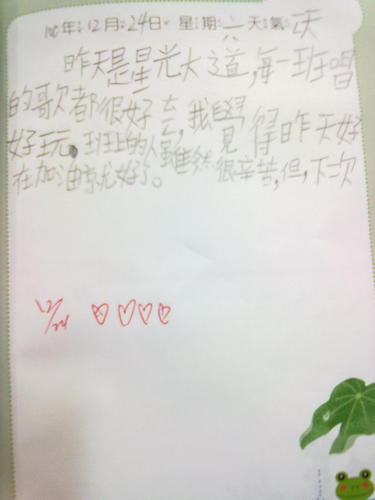 100年12月24日 星期六 天氣
昨天是星光大道,每一班唱
的歌都很好去,我覺得昨天好
好玩。班上的人雖然很辛苦,但,下次
在加油就好了。
12/24